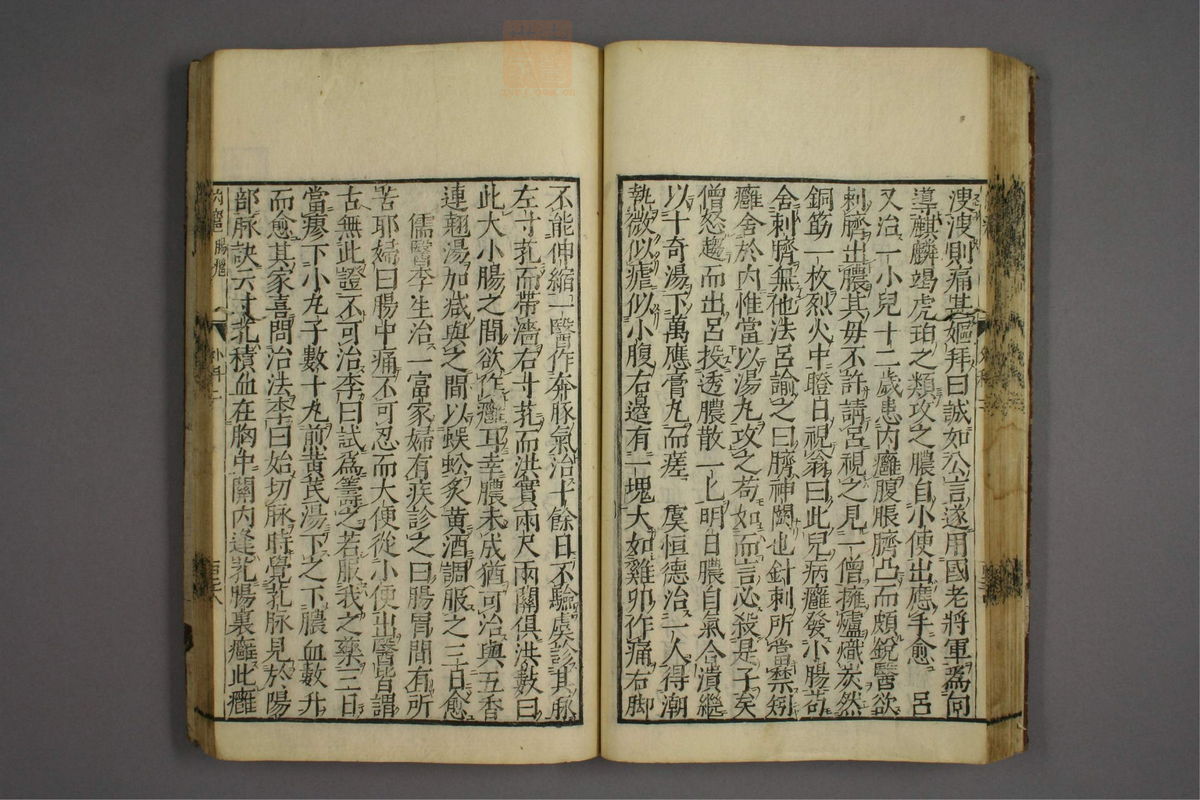 溲溲則痛甚嫗拜曰誠如公言遂用國老將軍為向
導麒麟竭虎珀之類攻之膿自小便出應手愈　呂
又治一小兒十二歲患內癰腹脹臍凸而頗銳醫欲
刺臍出膿其母不許請呂視之見一僧擁爐熾炭然
銅筋一枚烈火中瞪目視翁曰此兒病癰發小腸苟
舍刺臍無他法呂諭之曰臍神闕也針刺所當禁矧
癰舍於內惟當以湯丸攻之苟如而言必殺是子矣
僧怒趨而出呂投透膿散一匕明日膿自氣合潰繼
以十奇湯下萬應膏丸而瘥　虞恒德治一人得潮
執微似瘧似小腹右邉有一塊大如雞卵作痛右脚
不能伸縮一醫作奔豚氣治十餘日不驗虞診其脉
左寸芤而帶濇右寸芤而洪實兩尺兩關俱洪數曰
此大小腸之間欲作癰耳幸膿未成猶可治與五香
連翹湯加减與之間以蜈蚣炙黃酒調服之三日愈
儒醫李生治一富家婦有疾診之曰腸胃間有所
苦耶婦曰腸中痛不可忍而大便從小便出醫皆謂
古無此證不可治李曰試為籌之若服我之藥三日
當瘳下小丸子數十丸煎黃芪湯下之下膿血數升
而愈其家喜問治法李曰始切脉時覺芤脉見於陽
部脉訣云寸芤積血在胸中關內逢芤腸裏癰此癰
內癰 腸癰